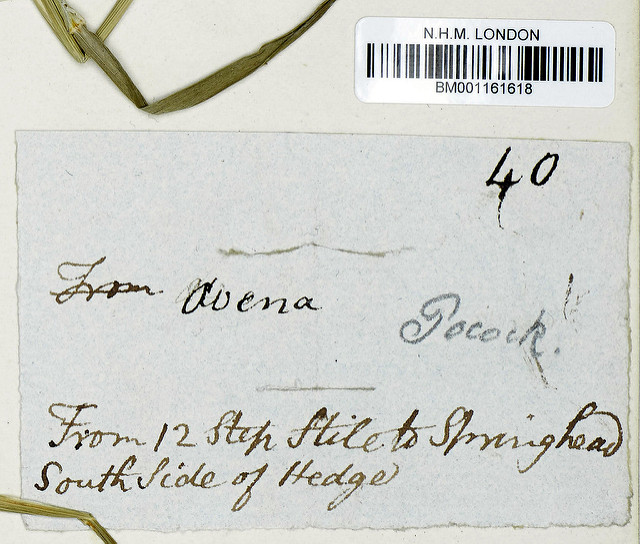 N.H.M. LONDON
BM001161618
40
From Avena
Pocock.
From 12 Step Stile to Springhead
South Side of Hedge